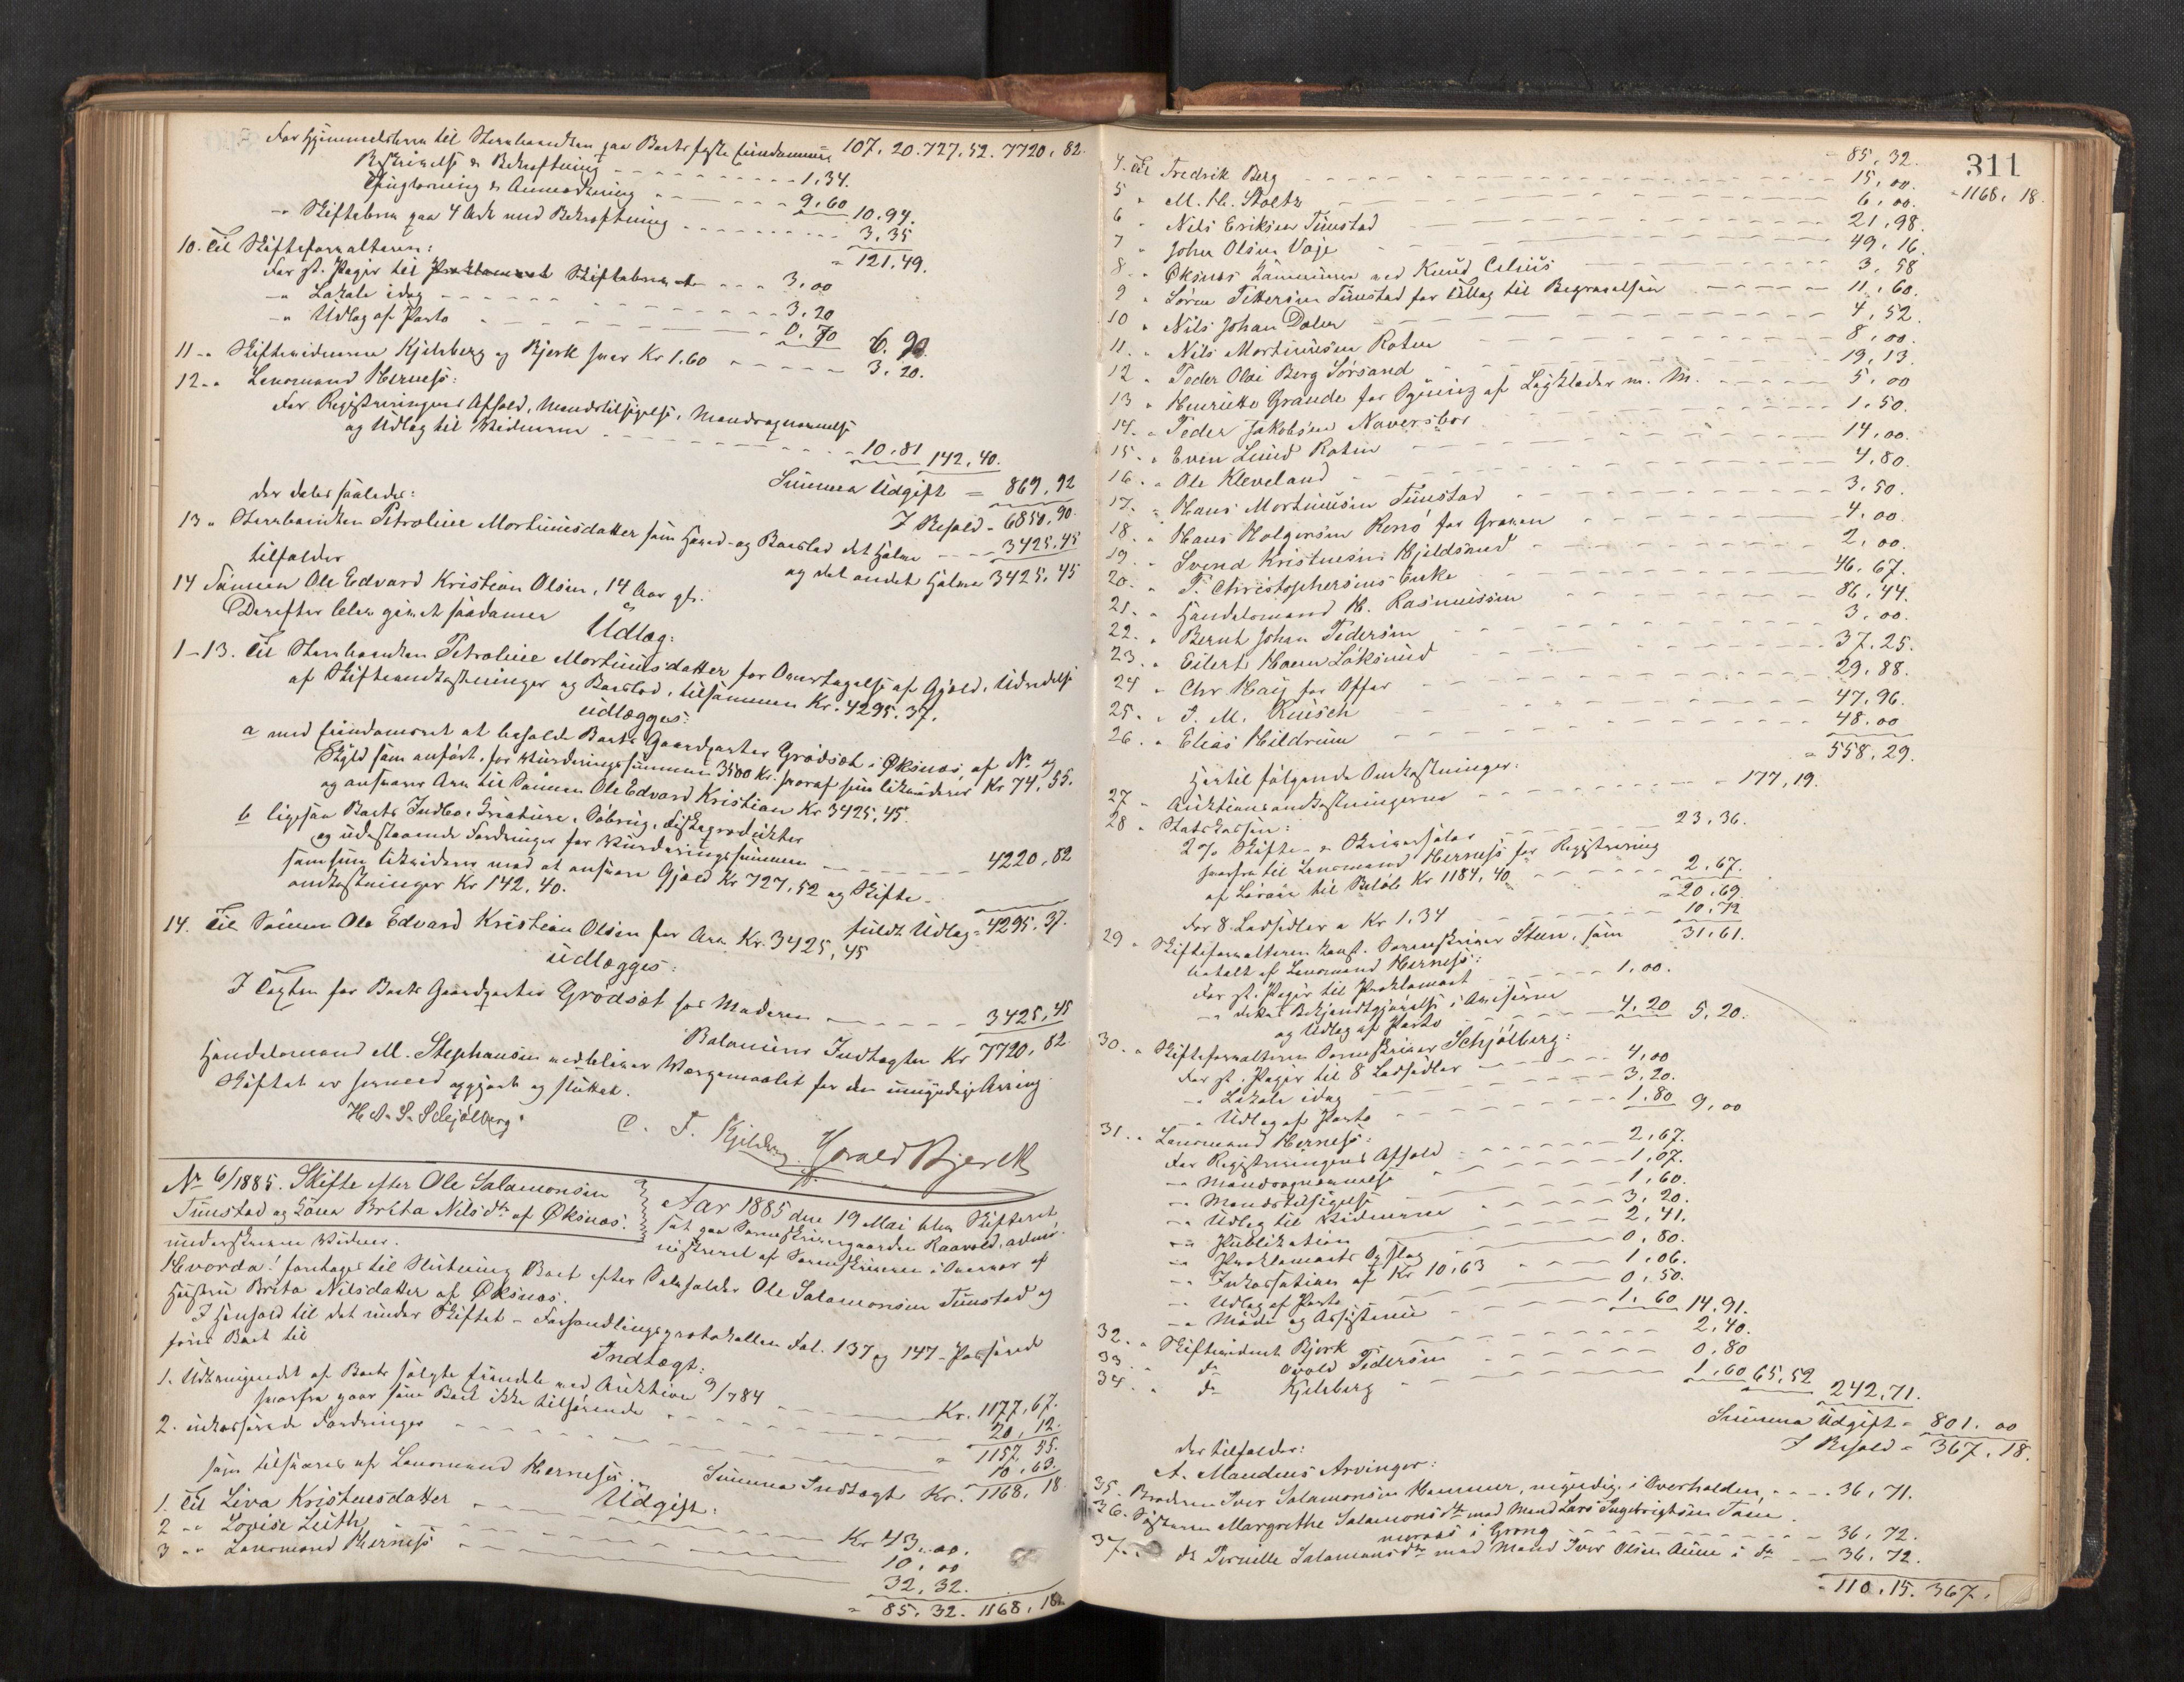 For Hjemmelsbrev til Sterbboenken paa Boets faste Eiendomme 107. 20. 727, 52. 7720, 82.
Beskrivelse & Bekræftning 1,34.
Thinglæsning & Anmærkning 9,60 10,94.
-" Skiftebrev paa 4 Ark med Bekræftning 3,35
" 121,49.
10. Til Skifteforvalteren:
For st. Papir til Skiftebrevet 3,00
-" Lokale idag 3,20
-" Udlæg af Porto 0,70 6,90.
11 -" Skiftevidnerne Kjelsberg og Bjerk hver Kr 1.60 3,20.
12 -" Lensmand Herness:
For Registreringens Afhold, Mandstilsigelse, Mandsopnævnelse
og Udlæg til Vidnerne 10,81 142,40.
Summa Udgift = 869,92
I Behold - 6850,90.
der deles saaledes:
13 " Sterbboenken Petroline Mortinusdatter som Hoved- og Boeslod det Halve 3425,45
tilfalder og det andet Halve 3425,45
14 Sønnen Ole Edvard Kristian Olsen, 14 Aar gl.
Derefter blev gjort saadanne
Udlæg:
1-13. Til Sterbboenken Petroline Mortinusdatter for Overtagelse af Gjæld, Udredelse
af Skifteomkostninger og Boeslod, tilsammen Kr. 4295.37.
udlægges:
a med Eiendomsret at beholde Boets Gaardparter Grødsæt i Øksnæs, af No og
Skyld som anført, for Vurderingssummen 3500 Kr. hvoraf hun likviderer Kr 74,55.
og ansvarer Arv til Sønnen Ole Edvard Kristian Kr 3425,45.
b ligesaa Boets Indbo, Kreature, Søbrug, Fiskeprodukter
og udestaaende Fordringer for Vurderingssummen 4220,82
som hun likviderer med at ansvare Gjæld Kr 727,52 og Skifte-
omkostninger Kr 142,40.
fuldt Udlæg = 4295.37.
14. Til Sønnen Ole Edvard Kristian Olsen for Arv Kr. 3425,45
udlægges:
I Taxten for Boets Gaardparter Grødsæt hos Moderen 3425,45
Balancerer Indtægten Kr 7720,82
Handelsmand M. Stephansen vedbliver Værgemaalet for den umyndige Arving.
Skiftet er hermed opgjort og sluttet.
H. A. S. Schjølberg. C. F. Kjelsberg. Harald Bjerck
No 6/1885. Skifte efter Ole Salamonsen
Tunstad og Kone Brita Nilsdtr af Øksnæs.
Aar 1885 den 19 Mai blev Skifteret
sat paa Sorenskrivergaarden Raavold, admi-
nistreret af Sorenskriveren i Overvær af
underskrevne Vidner.
Hvorda! foretages til Slutning Boet efter Selvholder Ole Salamonsen Tunstad og
Hustru Brita Nilsdatter af Øksnæs.
I Henhold til det under Skiftet - Forhandlingsprotokollen Fol. 137 og 147 - Passerede
føres Boet til
Indtægt:
1. Udbringendet af Boets solgte Eiendele ved Auktion 9/7 84 Kr. 1177,67.
hvorfra gaar som Boet ikke tilhørende 20,12.
" 1157,55.
2. inkasserede Fordringer 10,63.
som tilsvares af Lensmand Herness. Summa Indtægt Kr. 1168,18.
Udgift:
1. Til Liva Kristensdatter Kr 43,00.
2 -" Lovise Leith 10,00
3 -" Lensmand Herness 32,32.
" 85,32. 1168,18.
311
" 85,32. " 1168,18.
4. Til Fredrik Berg 15,00.
5 " M. H. Stoltz 6,00.
6 " Nils Eriksen Tunstad 21,98.
7 " Johan Olsen Vaje 49,16.
8. " Øksnæs Kommune ved Knud Celius 3,58
9 " Søren Pettersen Tunstad for Udlæg til Begravelsen 11,60.
10 " Nils Johan Dolen 4,52.
11. " Nils Mortinusen Roten 8,00.
12 " Peder Olai Berg Sørsand 19,13.
13 " Henrikke Grande for Syning af Ligklæder m. M. 5,00
14. " Peder Jakobsen Naversbor 1,50.
15. " Even Lund Roten 14,00.
16. " Ole Kleveland 4,80.
17. " Hans Mortinusen Tunstad 3,50.
18. " Hans Holgersen Hersø for Graven 4,00.
19. " Svend Kristensen Kjeldsand 2,00.
20. " P. Christophersens Enke 46,67.
21. " Handelsmand H. Rasmussen 86,44.
22. " Bernt Johan Pedersen 3,00.
23. " Eilert Hoen Løksund 37,25.
24 " Chr. Haij for Offer 29,88.
25. " J. M. Kusch 47,96.
26. " Elias Hildrum 48,00
" 558,29.
Hertil følgende Omkostninger:
27 " Auktionsomkostningerne 177,19.
28 " Statskassen:
2% Skifte- & Skriversalær 23,36.
hvorfra til Lensmand Herness for Registrering
af Løsøre til Beløb Kr 1184,40 2,67.
" 20,69.
For 8 Lodsedler a Kr 1,34 10,72
31,61.
29 " Skifteforvalteren konst. Sorenskriver Steen, som
betalt af Lensmand Herness:
For st. Papir til Proklamaet 1,00.
-" dettes Bekjendtgjørelse i Aviserne
og Udlæg af Porto 4,20 5,20.
30. " Skifteforvalteren Sorenskriver Schjølberg:
For st. Papir til 8 Lodsedler 4,00
-" Lokale idag 3,20.
-" Udlæg af Porto 1,80 9,00
31. " Lensmand Herness:
For Registreringens Afhold 2,67.
-" Mandsopnævnelse 1,07.
-" Mandstilsigelse 1,60.
-" Udlæg til Vidnerne 3,20.
-" Publikation 2,41.
-" Proklamaets Opslag 0,80.
-" Inkassation af Kr 10,63 1,06.
-" Udlæg af Porto 0,50.
-" Møde og Assistence 1,60 14,91.
32. " Skiftevidnet Bjerk 2,40.
33. " do Arvold Pedersen 0,80
34. " do Kjelsberg 1,60 65,52
242,71.
Summa Udgift = 801.00
I Behold = 367,18.
der tilfalder:
A. Mandens Arvinger:
35 - Broderen Iver Salamonsen Hammer, myndig, i Overhalden, 36,71.
36. Søsteren Margrethe Salamonsdtr med Mand Lars Ingebrigtsen Tøm-
meraas i Grong 36,72.
37. " do Pernille Salamonsdtr med Mand Iver Olsen Aune i do 36,72.
" 110,15. 367,